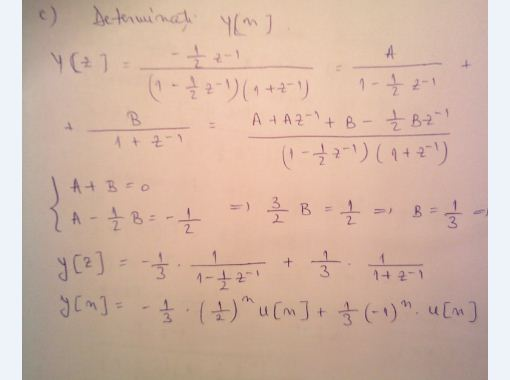 c) Determinați y[n].
Y[z] = (-1/2 z⁻¹) / ((1 - 1/2 z⁻¹)(1 + z⁻¹)) = A / (1 - 1/2 z⁻¹) +
+ B / (1 + z⁻¹) = (A + Az⁻¹ + B - 1/2 Bz⁻¹) / ((1 - 1/2 z⁻¹)(1 + z⁻¹))
{ A + B = 0
A - 1/2 B = -1/2 => 3/2 B = 1/2 => B = 1/3 =>
y[z] = -1/3 · 1 / (1 - 1/2 z⁻¹) + 1/3 · 1 / (1 + z⁻¹)
y[n] = -1/3 · (1/2)ⁿ u[n] + 1/3 (-1)ⁿ · u[n]